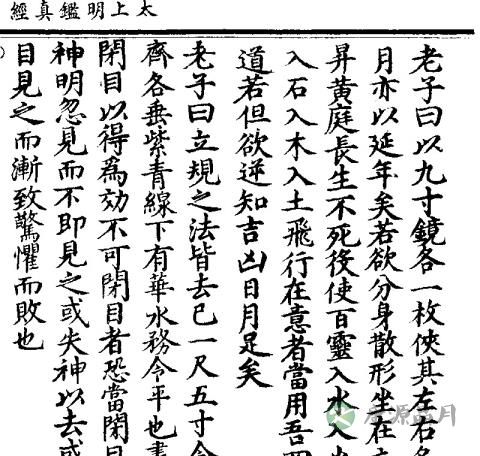 太上明鑑真經
老子曰以九寸鏡各一枚俠其左右名
月亦以延年矣若欲分身散形坐在
昇黃庭長生不死後使百靈入水入
入石入木入土飛行在意者當用吾四
道若但欲逆知吉凶日月足矣
老子曰立規之法皆去已一尺五寸令
齊各垂紫青線下有華水務令平也晝
閉目以得為効不可閉目者恐當閉目
神明忽見而不即見之或失神以去或
目見之而漸致驚懼而敗也